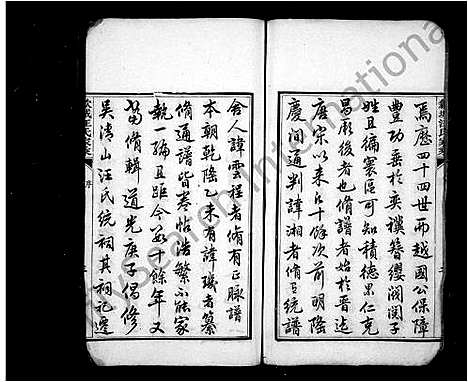 焉歷四十四世而越國公保障
豐功垂於奕禩簪纓閥閱子
姓且徧寰區可知積德累仁克
昌厥後者也脩譜者始於晉迄
唐宋以来凡十餘次前明隆
慶間通判諱湘者脩有統譜
舍人諱雲程者脩有正脉譜
本朝乾隆乙未有諱璣者纂
脩通譜皆卷帖浩繁不能家
執一編且距今六十餘年又
當脩輯道光庚子偶修
吳清山汪氏統祠其祠記遷
汪氏家乘
序
FamilySearch International